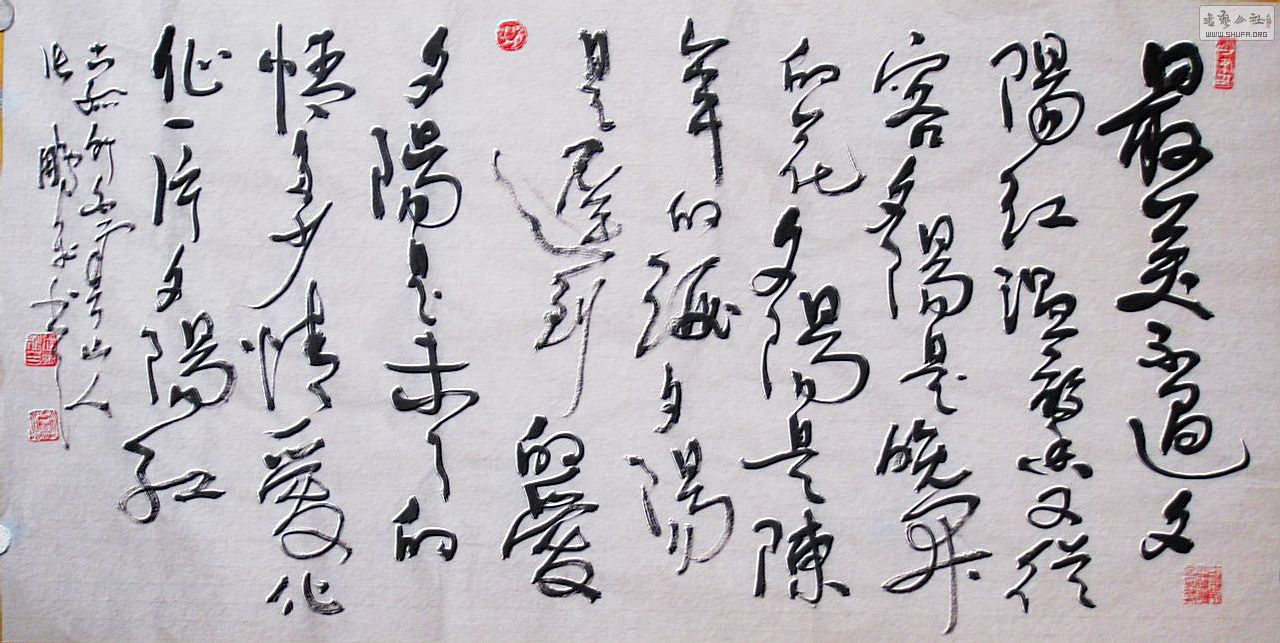 最美不過夕
陽紅温馨又從
容夕陽是晚開
的花夕陽是陳
年的酒夕陽
是遲到的愛
夕陽是未了的
情多少情愛化
作一片夕陽紅
山人
張鵬書
書藝公社
WWW.SHUFA.ORG